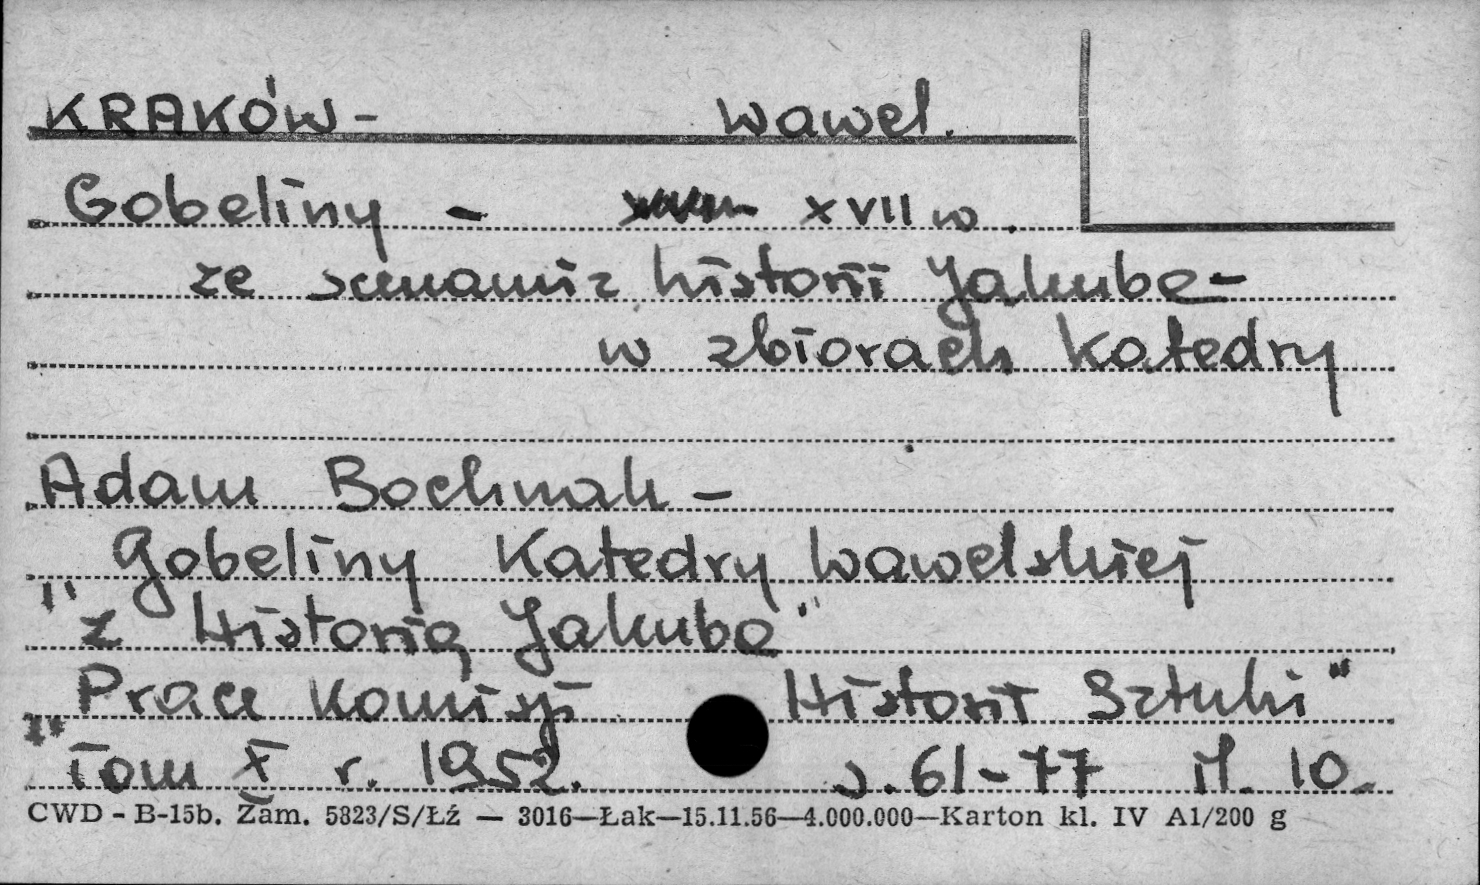 KRAKÓW - Wawel.
Gobeliny - XVII w.
ze scenami z historii Jakuba -
w zbiorach Katedry
Adam Bochnak -
Gobeliny Katedry Wawelskiej
"z Historią Jakuba"
Prace Komisji Historii Sztuki"
"Tom X r. 1952. s. 61-77 il. 10.
CWD - B-15b. Zam. 5823/S/Łź — 3016—Łak—15.11.56—4.000.000—Karton kl. IV A1/200 g